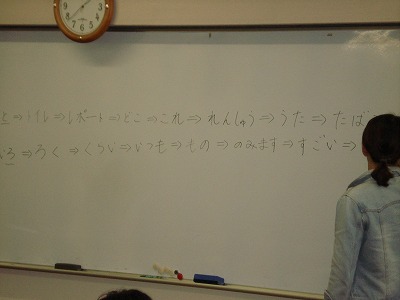 と⇒トイレ⇒レポート⇒どこ⇒これ⇒れんしゅう⇒うた⇒たば
ろ⇒ろく⇒くらい⇒いつも⇒もの⇒のみます⇒すごい⇒